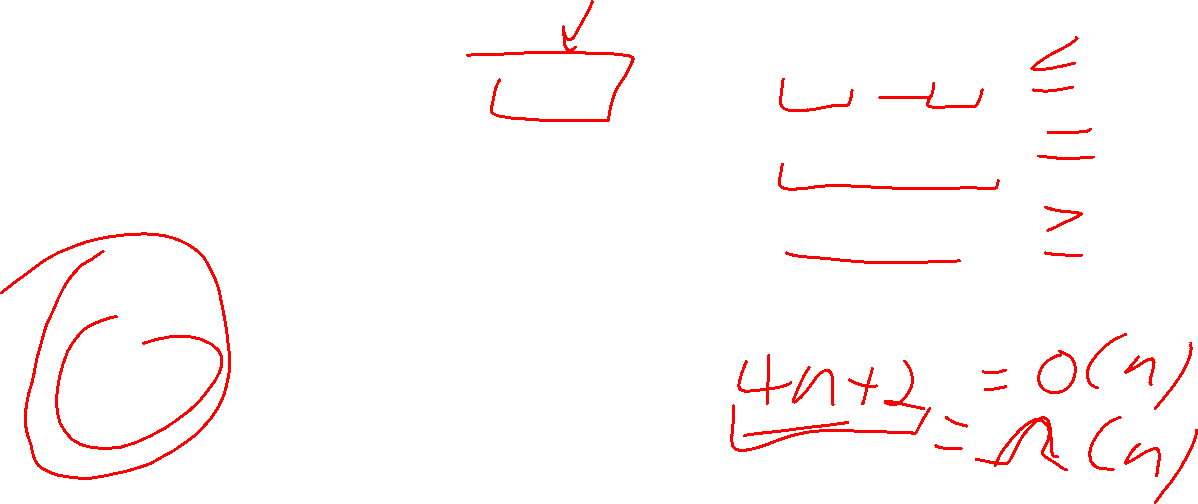 ≤
=
≥
4n+2 = O(n)
= Ω(n)